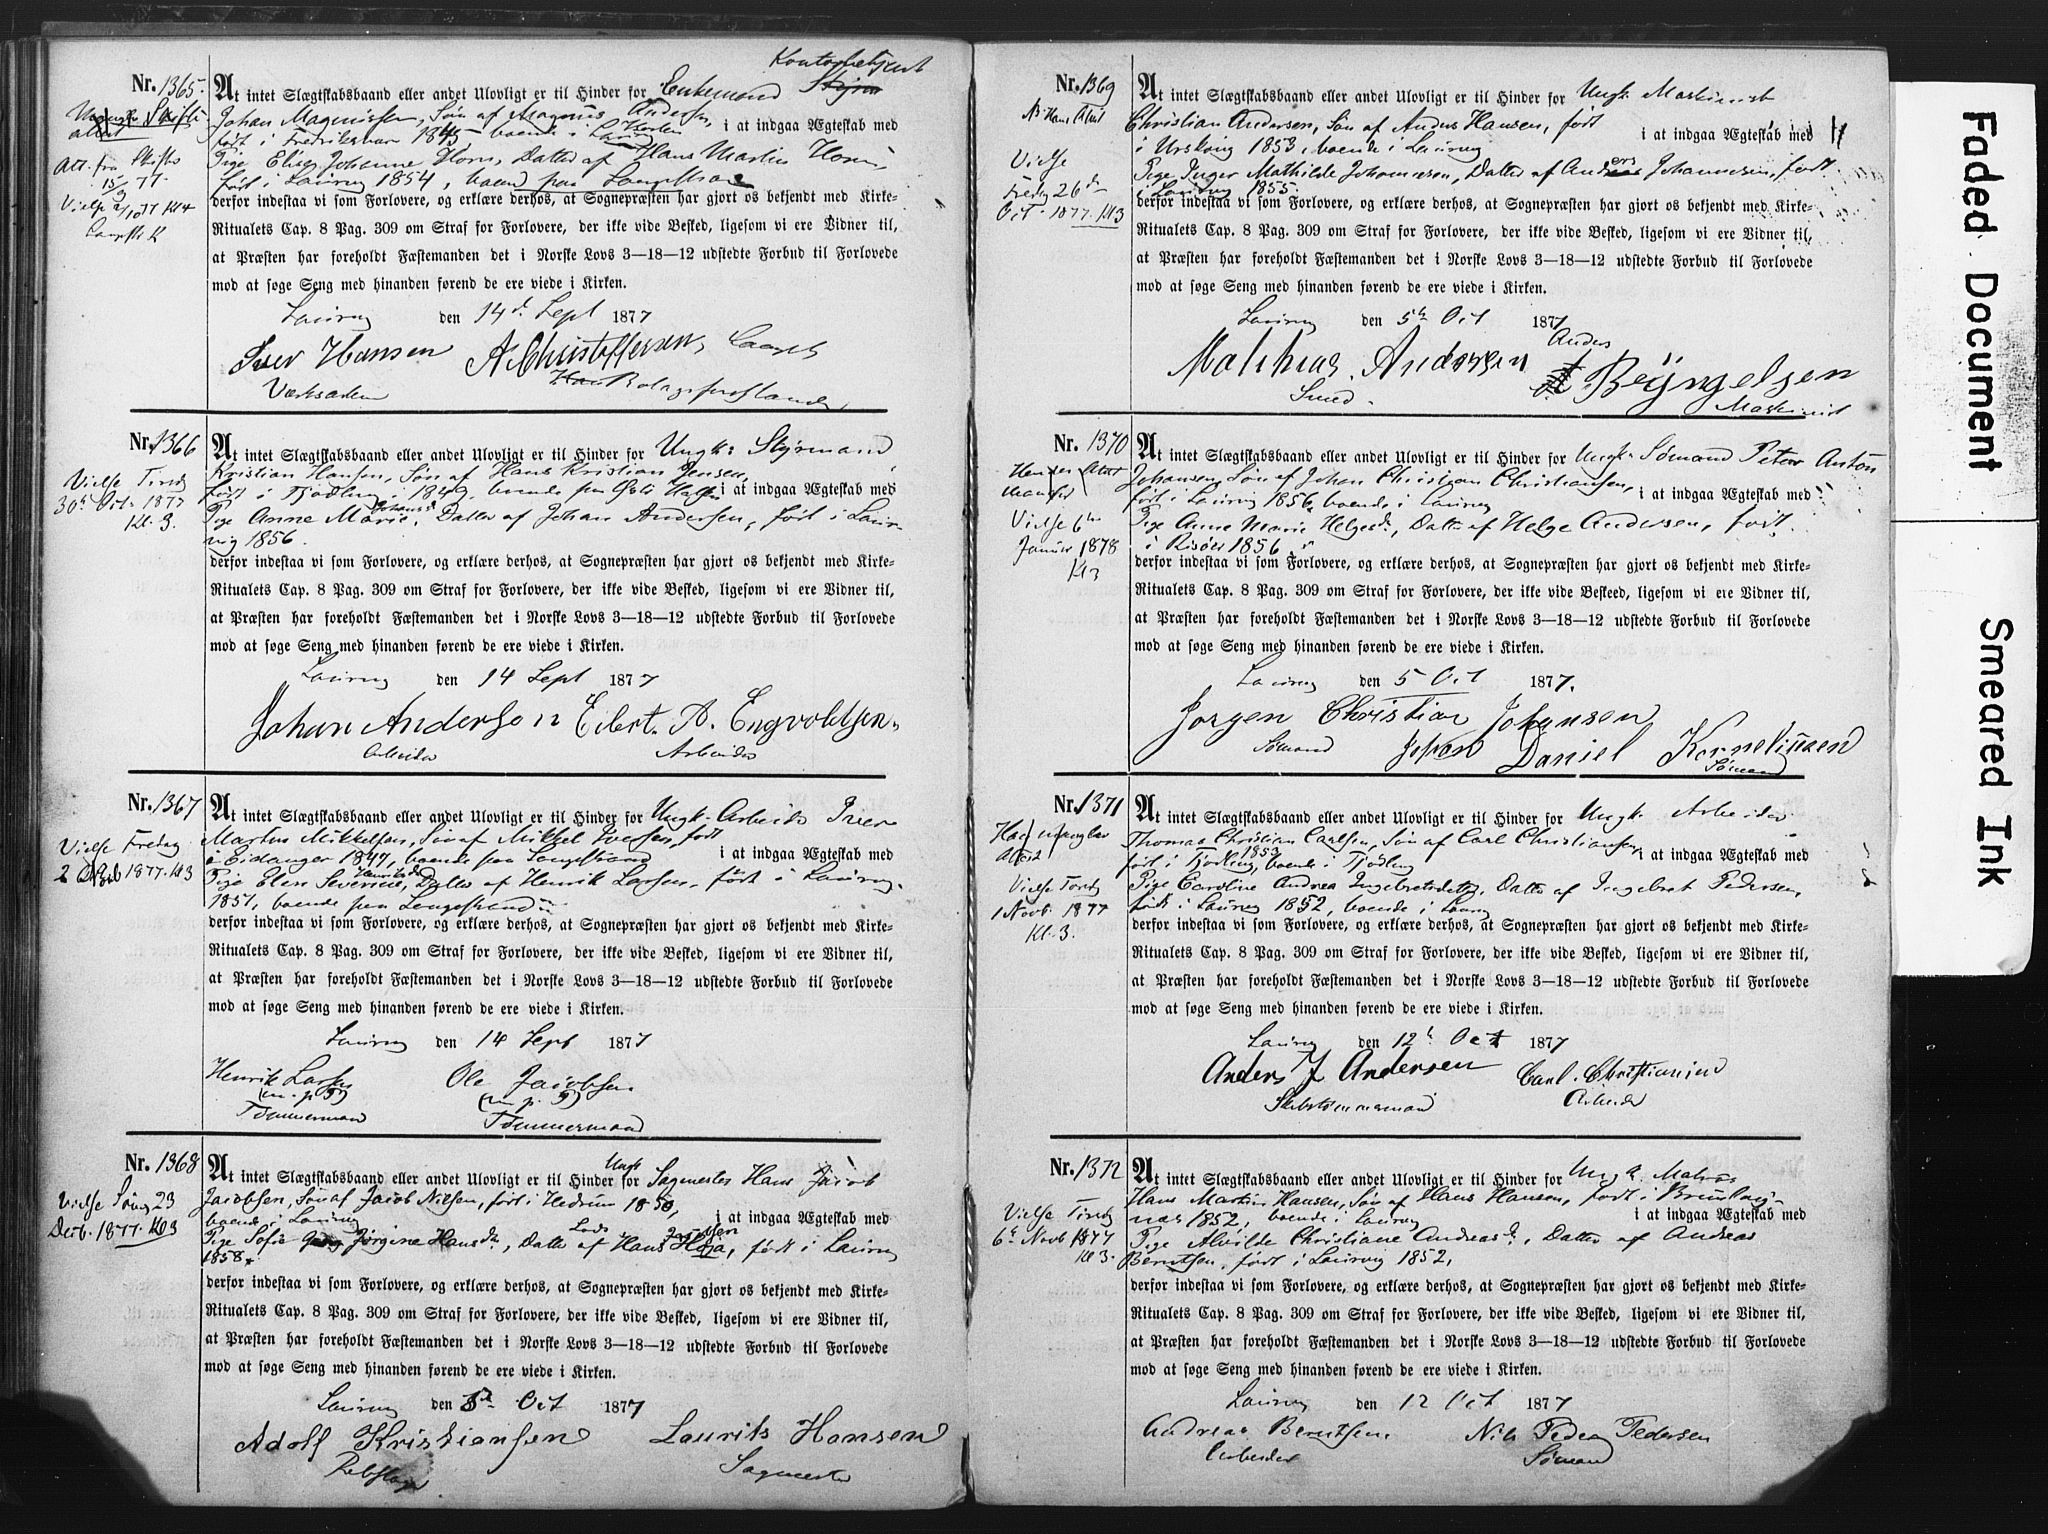 Nr. 1365.
Att. fra Skifte
15/9 77.
Vielse 2/10 77 Kl 4
Kontorbetjent
At intet Slægtskabsbaand eller andet Ulovligt er til Hinder for Enkemand
Johan Magnussen, Søn af Magnus Andersen,
født i Fredriksværn 1845 boende i i at indgaa Ægteskab med
Pige Elise Johanne Horn, Datter af Hans Martin Horn
født i Laurvig 1854, boende paa Langestrand
derfor indestaa vi som Forlovere, og erklære derhos, at Sognepræsten har gjort os bekjendt med Kirke-
Ritualets Cap. 8 Pag. 309 om Straf for Forlovere, der ikke vide Besked, ligesom vi ere Vidner til,
at Præsten har foreholdt Fæstemanden det i Norske Lovs 3—18—12 udstedte Forbud til Forlovede
mod at søge Seng med hinanden førend de ere viede i Kirken.
Laurvig den 14d Sept 1877
Iver Hansen A. Christoffersen,
Nr. 1366
Vielse Tirsdg
30te Oct. 1877
Kl. 3.
At intet Slægtskabsbaand eller andet Ulovligt er til Hinder for Ungk. Styrmand
Kristian Hansen, Søn af Hans Kristian Jensen,
født i Tjødling i 1849, boende paa i at indgaa Ægteskab med
Pige Anne Marie Johansd, Datter af Johan Andersen, født i Laur-
vig 1856.
derfor indestaa vi som Forlovere, og erklære derhos, at Sognepræsten har gjort os bekjendt med Kirke-
Ritualets Cap. 8 Pag. 309 om Straf for Forlovere, der ikke vide Besked, ligesom vi ere Vidner til,
at Præsten har foreholdt Fæstemanden det i Norske Lovs 3—18—12 udstedte Forbud til Forlovede
mod at søge Seng med hinanden førend de ere viede i Kirken.
Laurvig den 14 Sept 1877
Johan Anderson Eilert. A. Engvoldsen.
Arbeider Arbeider
Nr. 1367
Vielse Fredag
2 1877. Kl 3
At intet Slægtskabsbaand eller andet Ulovligt er til Hinder for Ungk. Arbeider Iver
Martin Mikkelsen, Søn af Mikkel Iversen, født
i Eidanger 1847, boende paa Langestrand i at indgaa Ægteskab med
Pige Elen Severine Henriksd, Datter af Henrik Larsen, født i Laurvig
1851, boende paa Langestrand
derfor indestaa vi som Forlovere, og erklære derhos, at Sognepræsten har gjort os bekjendt med Kirke-
Ritualets Cap. 8 Pag. 309 om Straf for Forlovere, der ikke vide Besked, ligesom vi ere Vidner til,
at Præsten har foreholdt Fæstemanden det i Norske Lovs 3—18—12 udstedte Forbud til Forlovede
mod at søge Seng med hinanden førend de ere viede i Kirken.
Laurvig den 14 Sept 1877
Henrik Larsen Ole Jacobsen
(m. p. P) (m. p. P)
Tømmermand Tømmermand
Nr. 1368
Vielse Søng 23
Decb. 1877. Kl 3
At intet Slægtskabsbaand eller andet Ulovligt er til Hinder for Ungk Sagmester Hans Jacob
Jacobsen, Søn af Jacob Nilsen, født i Hedrum 1850,
boende i Laurvig i at indgaa Ægteskab med
Pige Sofie Jørgine Hansd., Datter af Hans født i Laurvig
1858
derfor indestaa vi som Forlovere, og erklære derhos, at Sognepræsten har gjort os bekjendt med Kirke-
Ritualets Cap. 8 Pag. 309 om Straf for Forlovere, der ikke vide Besked, ligesom vi ere Vidner til,
at Præsten har foreholdt Fæstemanden det i Norske Lovs 3—18—12 udstedte Forbud til Forlovede
mod at søge Seng med hinanden førend de ere viede i Kirken.
Laurvig den 5d Oct 1877
Adolf Kristiansen Laurits Hansen
Rebslager Sagmester
Nr. 1369
Vielse
Fredg 26de
Oct. 1877. Kl 3
At intet Slægtskabsbaand eller andet Ulovligt er til Hinder for Ungk. Maskinist
Christian Andersen, Søn af Anders Hansen, født
i Urskoug 1853, boende i Laurvig i at indgaa Ægteskab med
Pige Inger Mathilde Johannesen, Datter af Anders Johannesen, født
i Laurvig 1855.
derfor indestaa vi som Forlovere, og erklære derhos, at Sognepræsten har gjort os bekjendt med Kirke-
Ritualets Cap. 8 Pag. 309 om Straf for Forlovere, der ikke vide Besked, ligesom vi ere Vidner til,
at Præsten har foreholdt Fæstemanden det i Norske Lovs 3—18—12 udstedte Forbud til Forlovede
mod at søge Seng med hinanden førend de ere viede i Kirken.
Laurvig den 5te Oct 1877
Mathias Andersen Anders Bÿngelsen
Smed. Maskinist
Nr. 1370
Vielse 6te
Januar 1878
Kl 3
At intet Slægtskabsbaand eller andet Ulovligt er til Hinder for Ungk. Sømand Peter Anton
Johansen, Søn af Johan Christian Christiansen,
født i Laurvig 1856, boende i Laurvig i at indgaa Ægteskab med
Pige Anne Marie Helgesd., Datter af Helge Andersen, født
i Risøer 1856
derfor indestaa vi som Forlovere, og erklære derhos, at Sognepræsten har gjort os bekjendt med Kirke-
Ritualets Cap. 8 Pag. 309 om Straf for Forlovere, der ikke vide Beskeed, ligesom vi ere Vidner til,
at Præsten har foreholdt Fæstemanden det i Norske Lovs 3—18—12 udstedte Forbud til Forlovede
mod at søge Seng med hinanden førend de ere viede i Kirken.
Laurvig den 5 Oct 1877.
Jorgen Christian Johansen
Sømand Johan Daniel Korneliussen
Sømand
Nr. 1371
Vielse Torsdg
1 Novb. 1877
Kl. 3.
At intet Slægtskabsbaand eller andet Ulovligt er til Hinder for Ungk. Arbeider
Thomas Christian Carlsen, Søn af Carl Christiansen,
født i Tjødling 1853, boende i Tjødling i at indgaa Ægteskab med
Pige Caroline Andrea Ingebretsdatter, Datter af Ingebret Pedersen,
født i Laurvig 1852, boende i Laurvig
derfor indestaa vi som Forlovere, og erklære derhos, at Sognepræsten har gjort os bekjendt med Kirke-
Ritualets Cap. 8 Pag. 309 om Straf for Forlovere, der ikke vide Besked, ligesom vi ere Vidner til,
at Præsten har foreholdt Fæstemanden det i Norske Lovs 3—18—12 udstedte Forbud til Forlovede
mod at søge Seng med hinanden førend de ere viede i Kirken.
Laurvig den 12te Oct 1877
Anders J Andersen Carl. Christiansen
Skibstømmermand Arbeider
Nr. 1372
Vielse Tirsdg
6te Novb 1877
Kl 3.
At intet Slægtskabsbaand eller andet Ulovligt er til Hinder for Ungk. Matros
Hans Martin Hansen, Søn af Hans Hansen, født i Brunlag-
næs 1852, boende i Laurvig i at indgaa Ægteskab med
Pige Alvilde Christiane Andreasd., Datter af Andreas
Berntsen, født i Laurvig 1852,
derfor indestaa vi som Forlovere, og erklære derhos, at Sognepræsten har gjort os bekjendt med Kirke-
Ritualets Cap. 8 Pag. 309 om Straf for Forlovere, der ikke vide Besked, ligesom vi ere Vidner til,
at Præsten har foreholdt Fæstemanden det i Norske Lovs 3—18—12 udstedte Forbud til Forlovede
mod at søge Seng med hinanden førend de ere viede i Kirken.
Laurvig den 12 Oct 1877
Andreas Berntsen. Nils Peder Pedersen
Arbeider Sømand
Faded Document
Smeared Ink